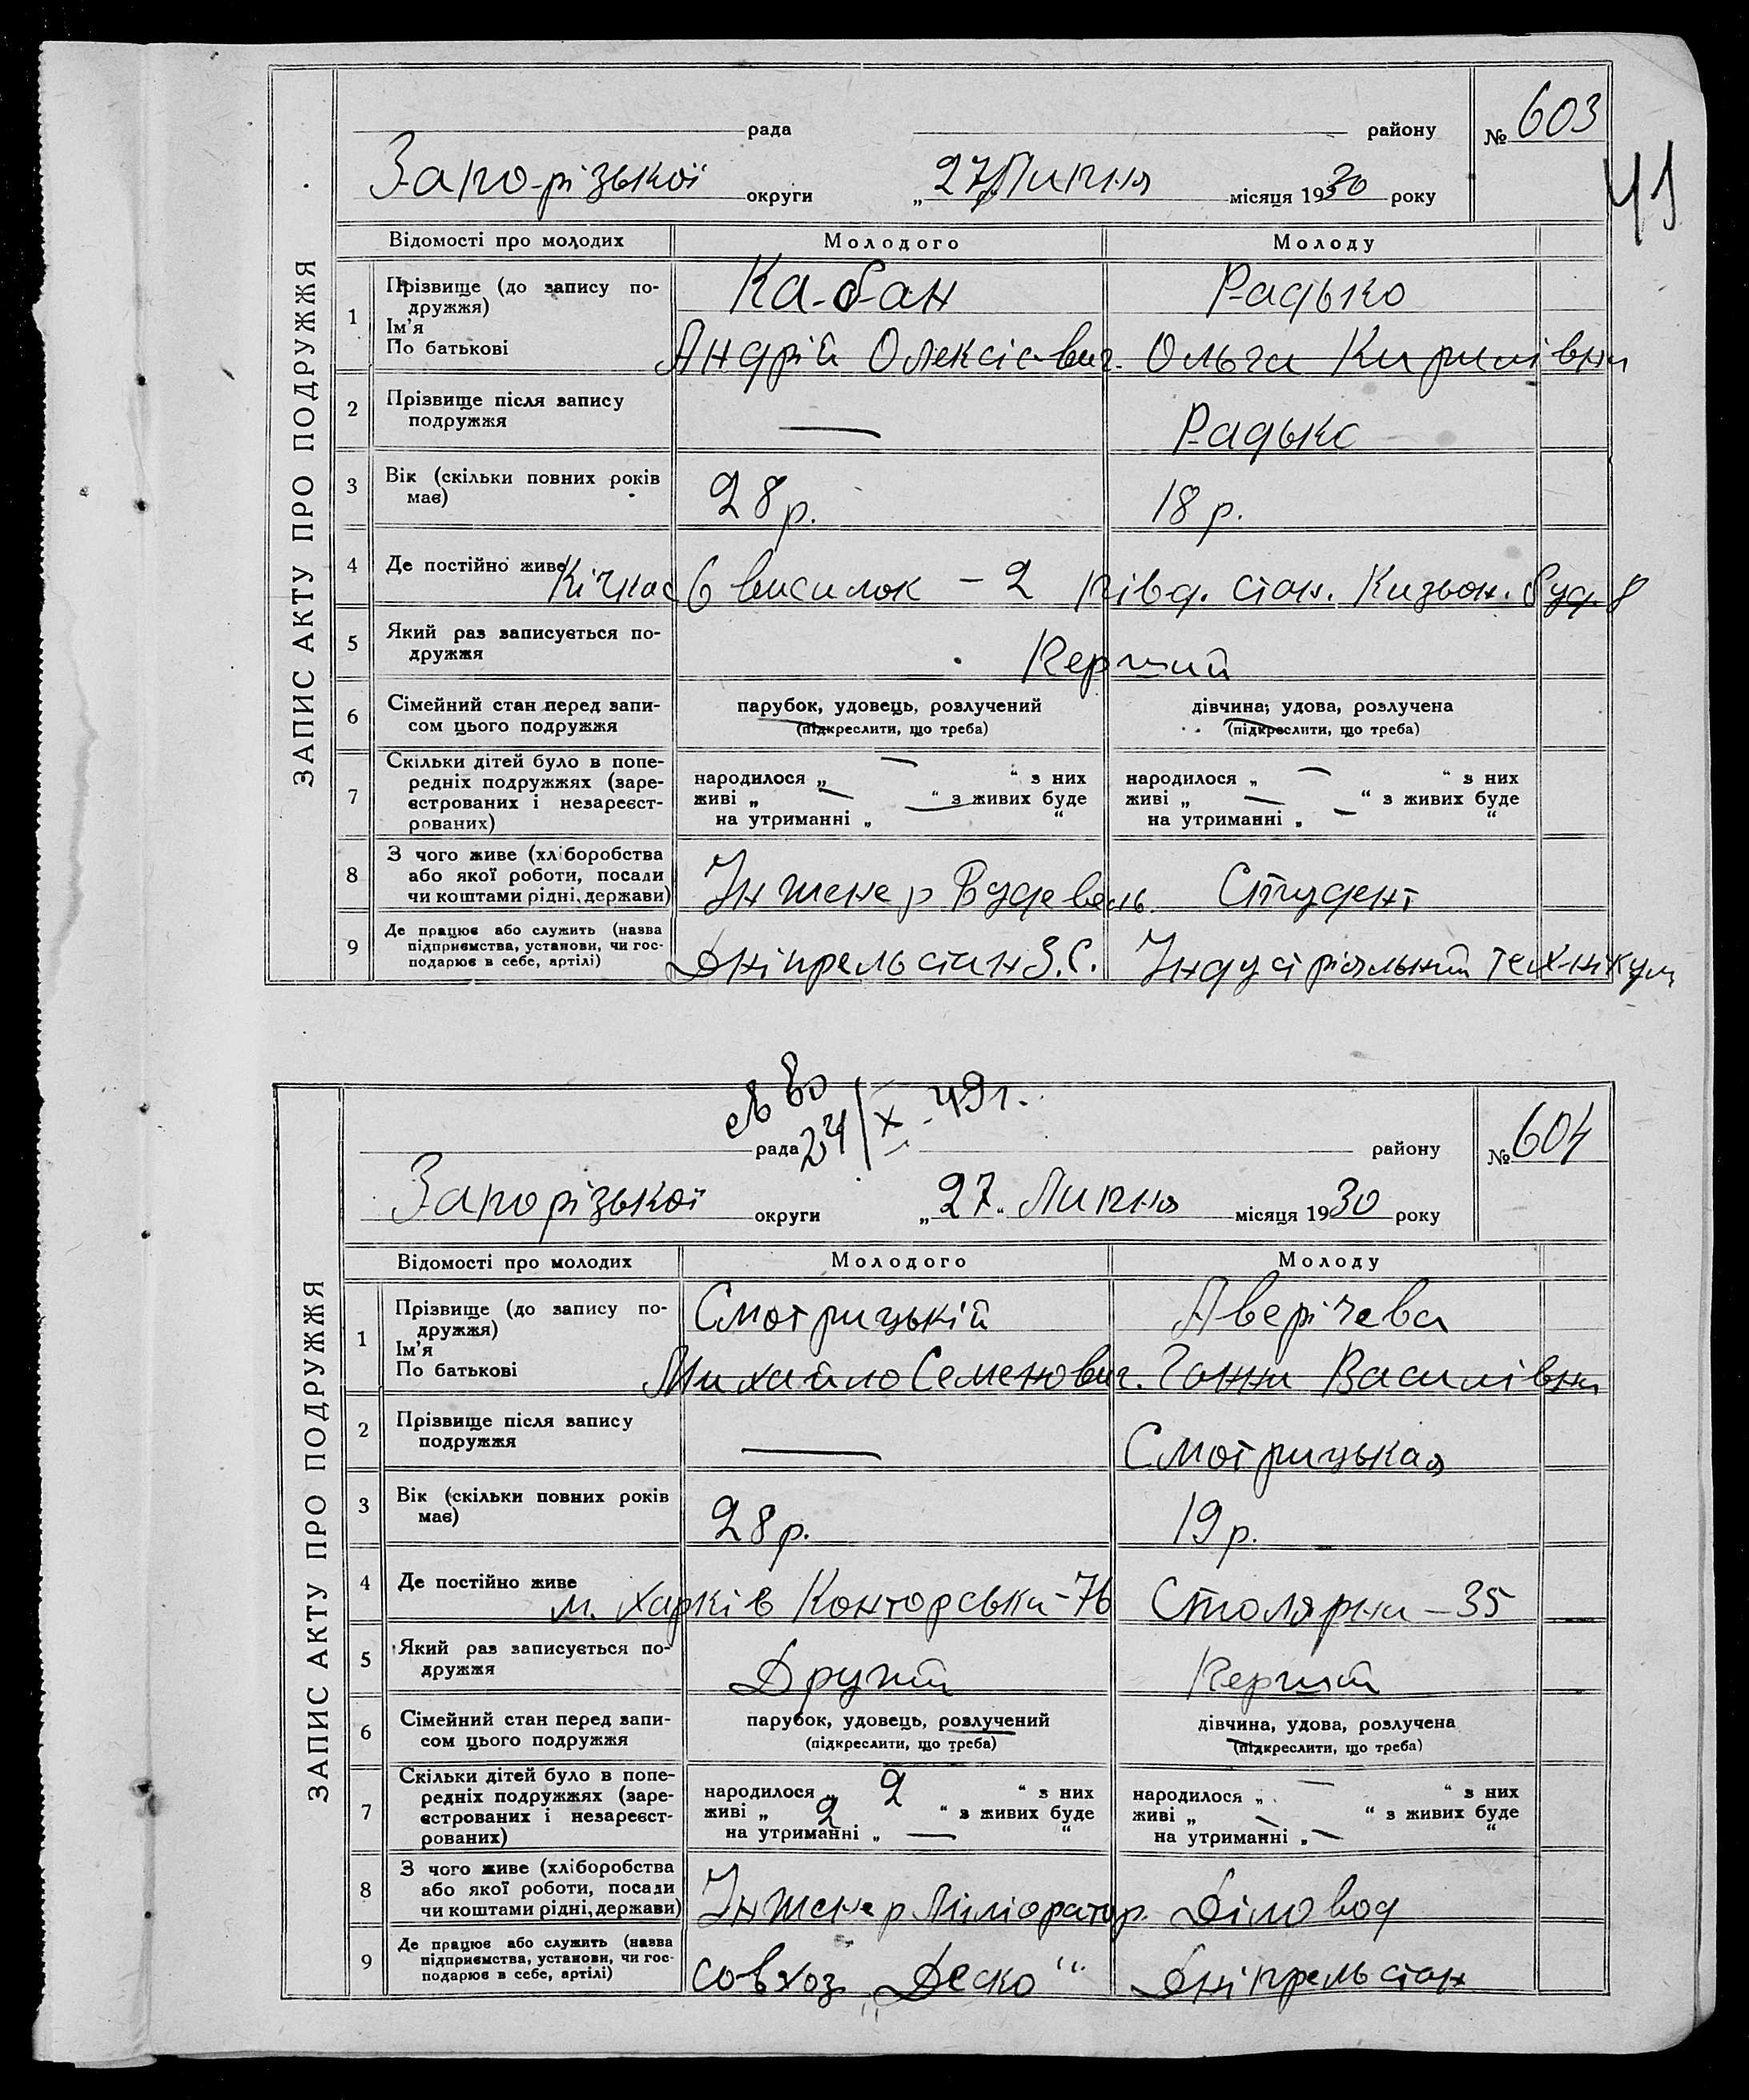 ЗАПИС АКТУ ПРО ПОДРУЖЖЯ
рада району № 603
41
Запорізької округи „27" Липня місяця 1930 року
Відомості про молодих Молодого Молоду
1 Прізвище (до запису по-
дружжя) Кабан Радько
Ім'я
По батькові Андрій Олексієвич. Ольга Кирилівна
2 Прізвище після запису
подружжя — Радько
3 Вік (скільки повних років
має) 28 р. 18 р.
4 Де постійно живе Кічкас 6 виселок - 2 Півд. стан. Кизьон. буд. 8
5 Який раз записується по-
дружжя Перший
6 Сімейний стан перед запи-
сом цього подружжя
парубок, удовець, розлучений
(підкреслити, що треба)
дівчина, удова, розлучена
(підкреслити, що треба)
7 Скільки дітей було в попе-
редніх подружжях (заре-
єстрованих і незареєст-
рованих)
народилося „ — “ з них
живі „ — “ з живих буде
на утриманні „ — “
народилося „ — “ з них
живі „ — “ з живих буде
на утриманні „ — “
8 З чого живе (хліборобства
або якої роботи, посади
чи коштами рідні, держави) Інженер Студент
9 Де працює або служить (назва
підприємства, установи, чи гос-
подарює в себе, артілі) Дніпрельстан З.С. Індустріальний технікум
ЗАПИС АКТУ ПРО ПОДРУЖЖЯ
№ 80
24/X - 49 г.
рада району № 604
Запорізької округи „27" Липня місяця 1930 року
Відомості про молодих Молодого Молоду
1 Прізвище (до запису по-
дружжя) Смотрицький Аверічева
Ім'я
По батькові Михайло Семенович. Ганна Василівна
2 Прізвище після запису
подружжя — Смотрицькая
3 Вік (скільки повних років
має) 28 р. 19 р.
4 Де постійно живе м. Харків Конторська - 76 Столярна - 35
5 Який раз записується по-
дружжя Другий Перший
6 Сімейний стан перед запи-
сом цього подружжя
парубок, удовець, розлучений
(підкреслити, що треба)
дівчина, удова, розлучена
(підкреслити, що треба)
7 Скільки дітей було в попе-
редніх подружжях (заре-
єстрованих і незареєст-
рованих)
народилося „ 2 “ з них
живі „ 2 “ з живих буде
на утриманні „ — “
народилося „ — “ з них
живі „ — “ з живих буде
на утриманні „ — “
8 З чого живе (хліборобства
або якої роботи, посади
чи коштами рідні, держави) Інженер Міліоратор. Діловод
9 Де працює або служить (назва
підприємства, установи, чи гос-
подарює в себе, артілі) Совхоз „Деско" Дніпрельстан